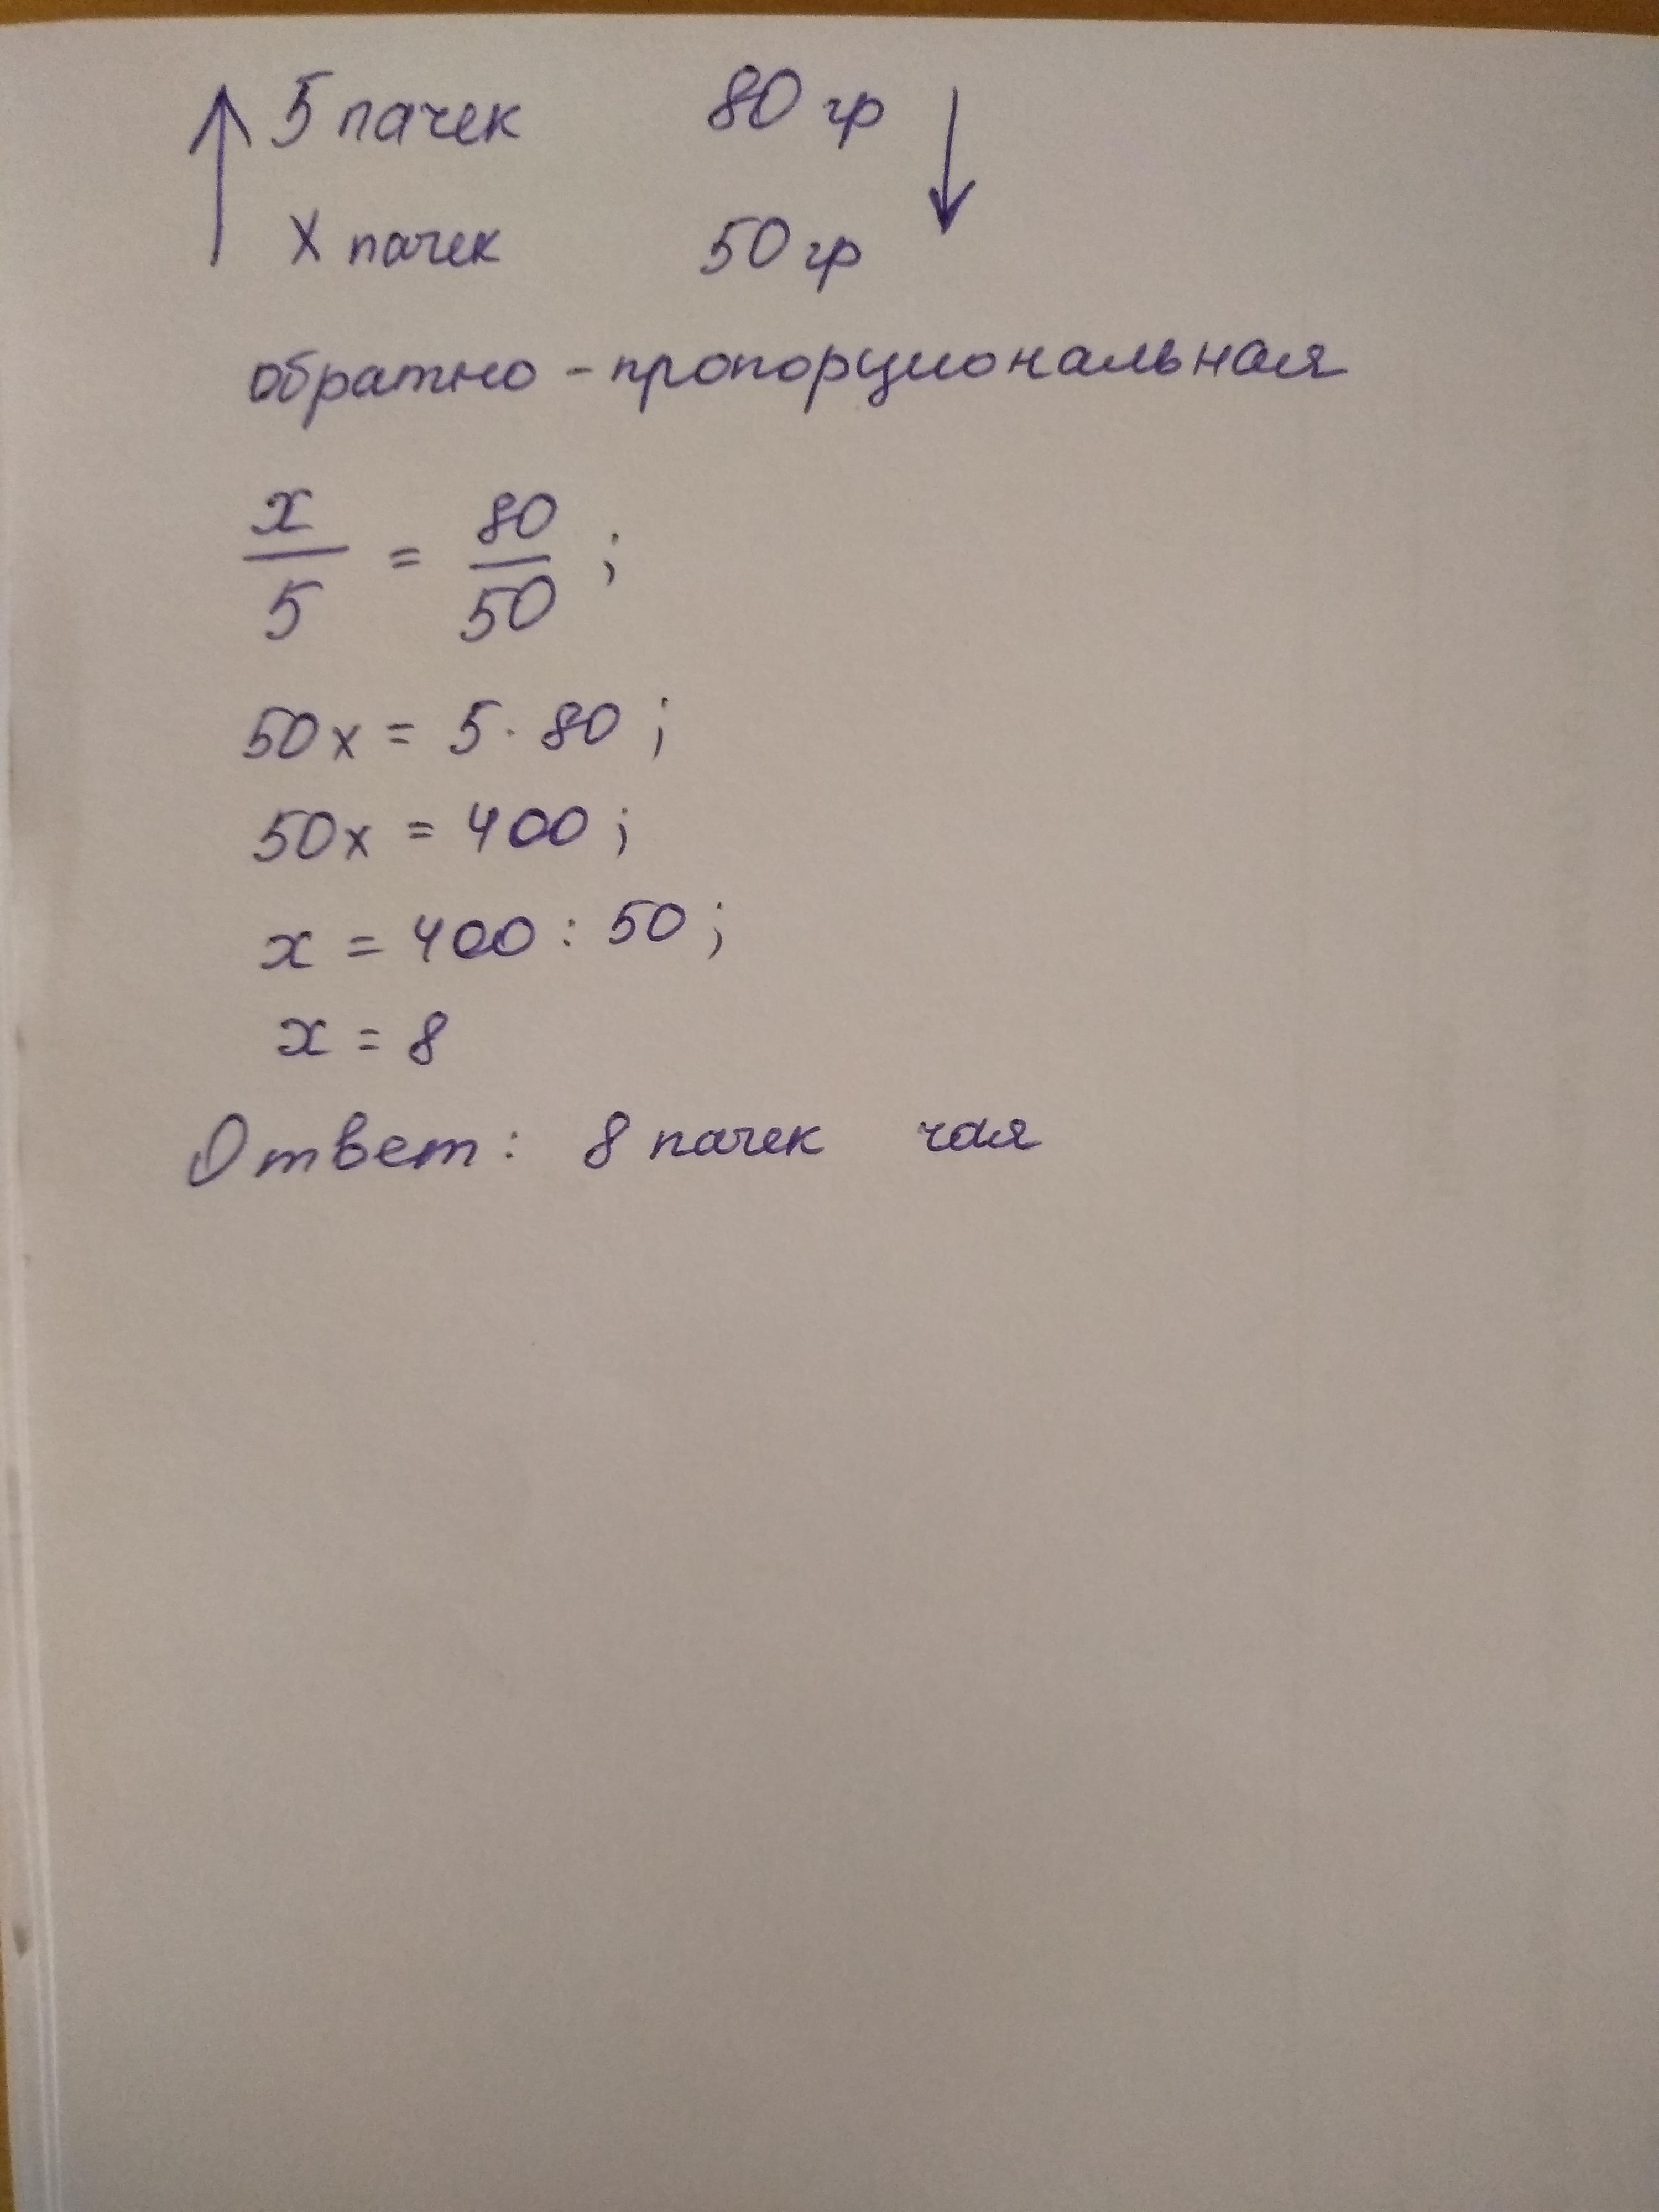 ↑ 5 пачек 80 гр ↓
x пачек 50 гр
обратно - пропорциональная
x/5 = 80/50 ;
50x = 5 · 80 ;
50x = 400 ;
x = 400 : 50 ;
x = 8
Ответ: 8 пачек чая